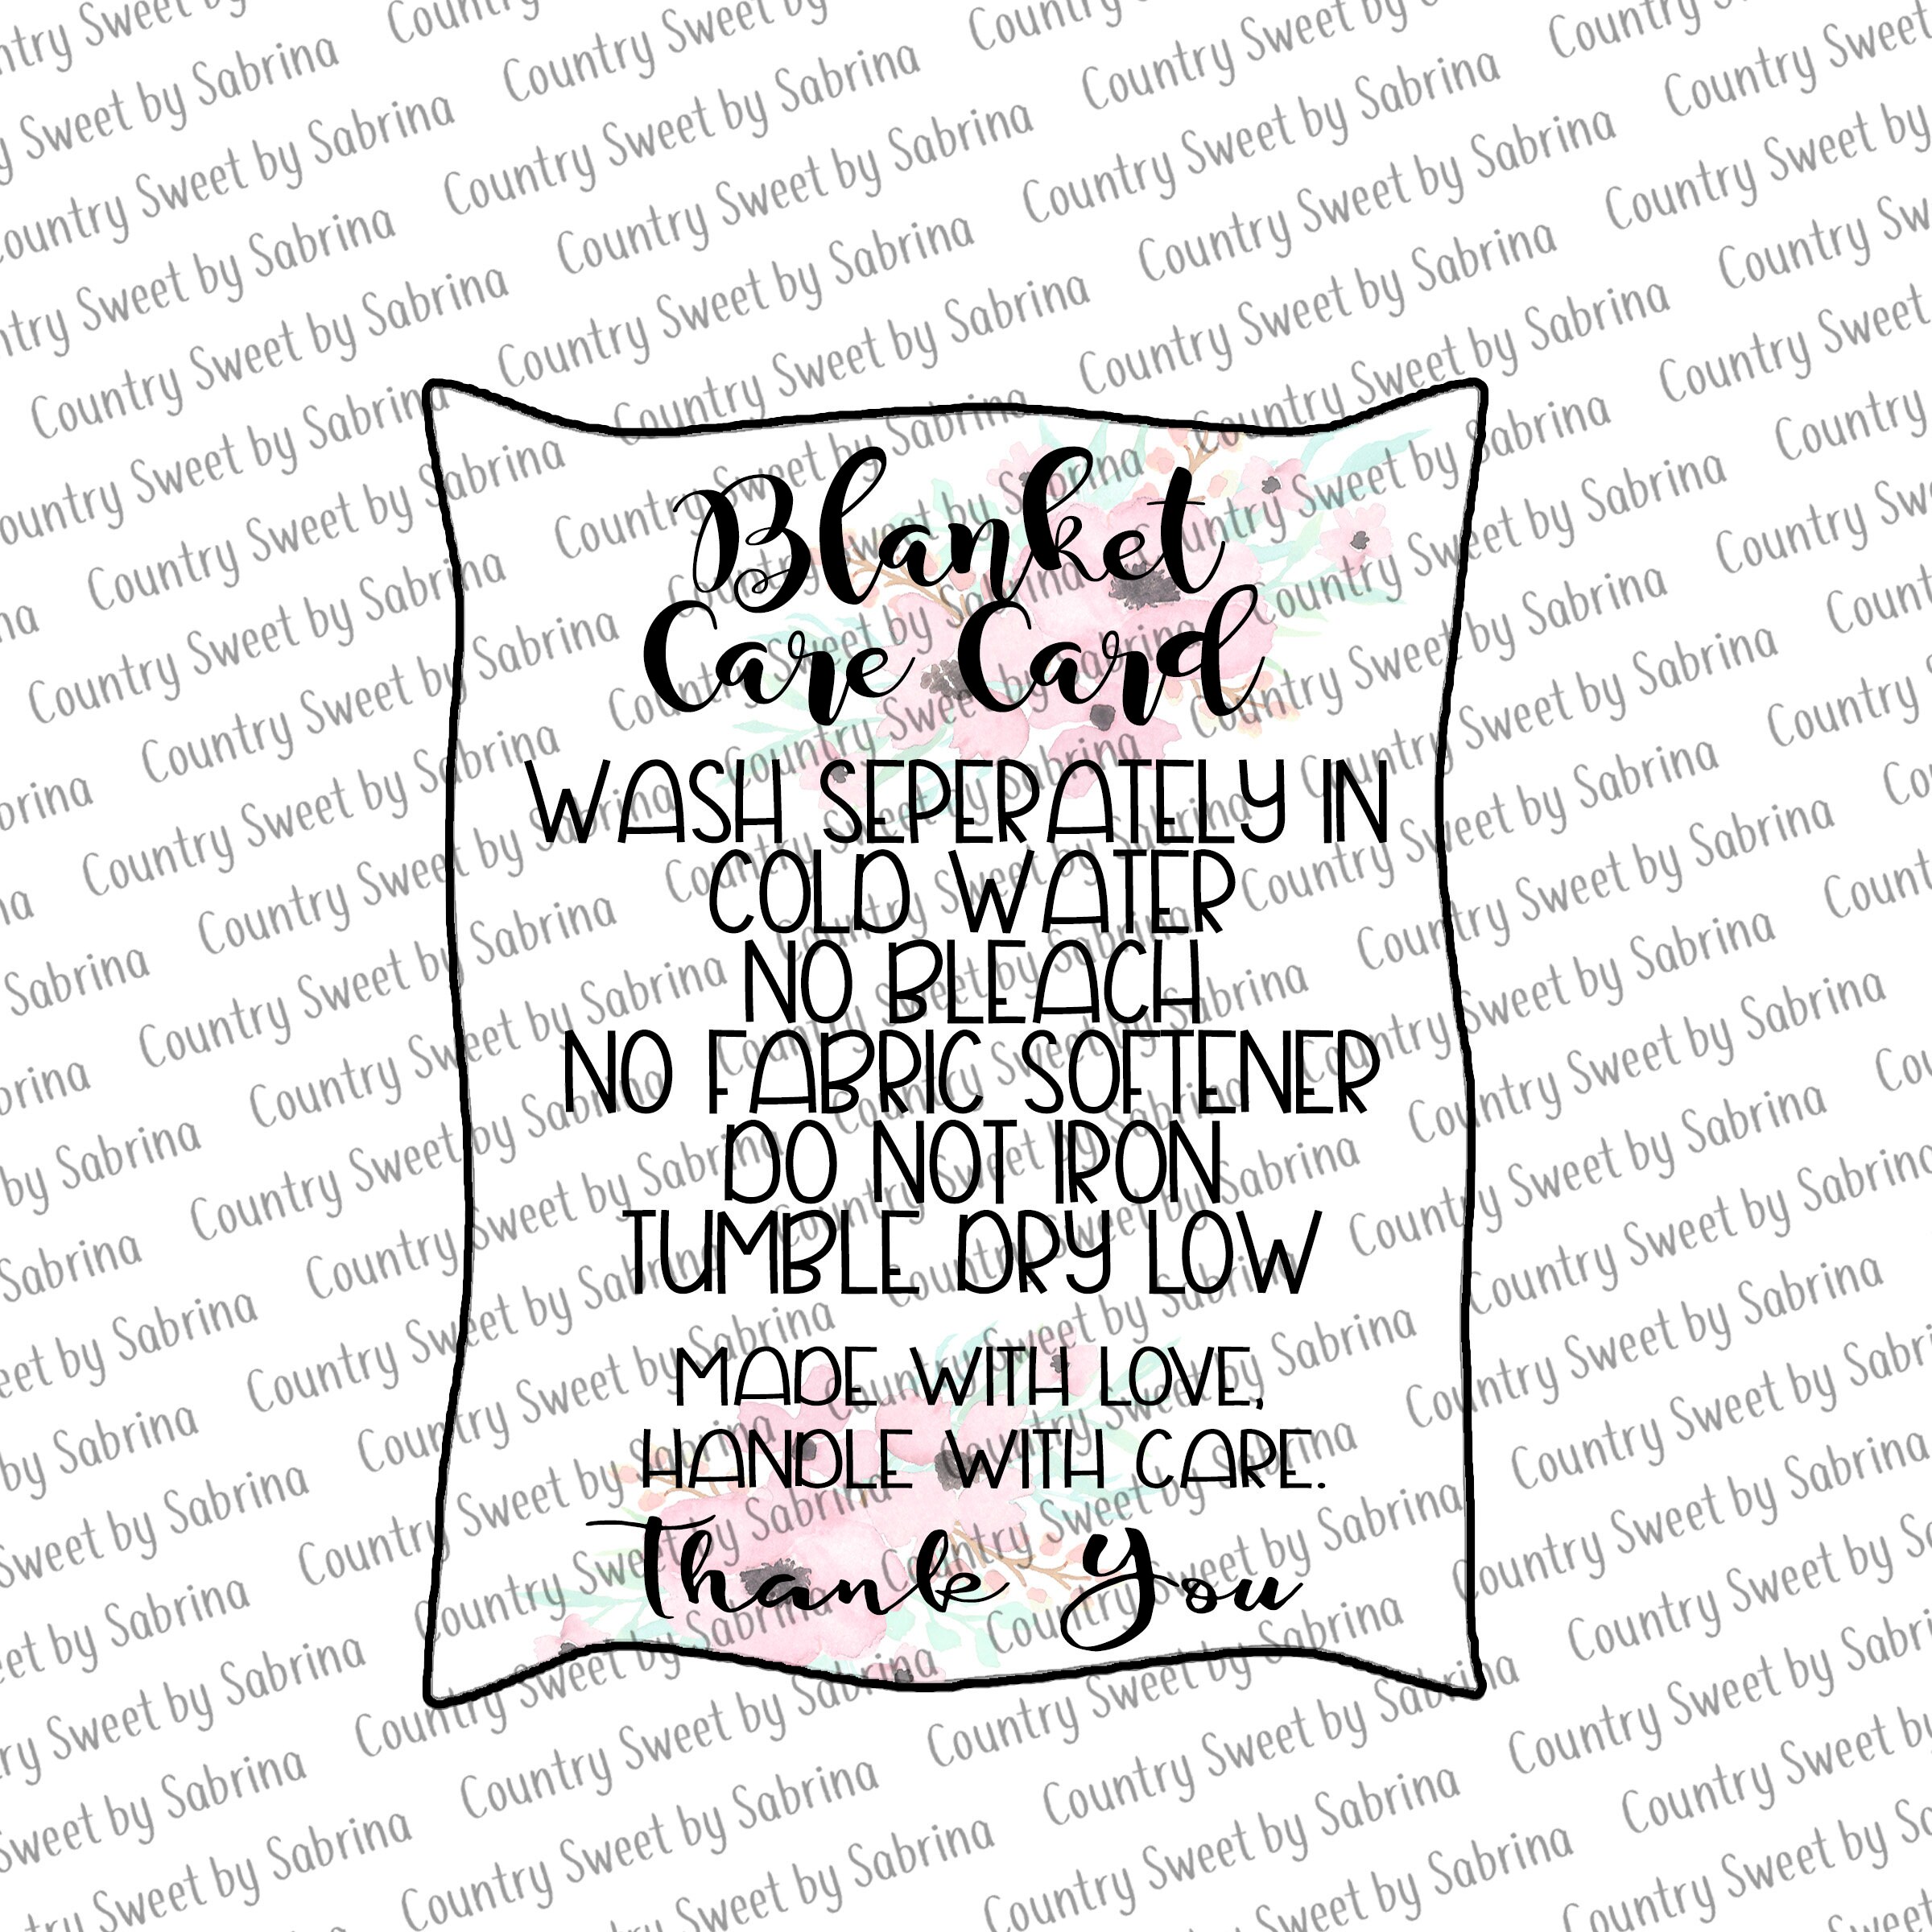 Blanket
Care Card
WASH SEPERATELY IN
COLD WATER
NO BLEACH
NO FABRIC SOFTENER
DO NOT IRON
TUMBLE DRY LOW
MADE WITH LOVE,
HANDLE WITH CARE.
Thank You
Country Sweet by Sabrina